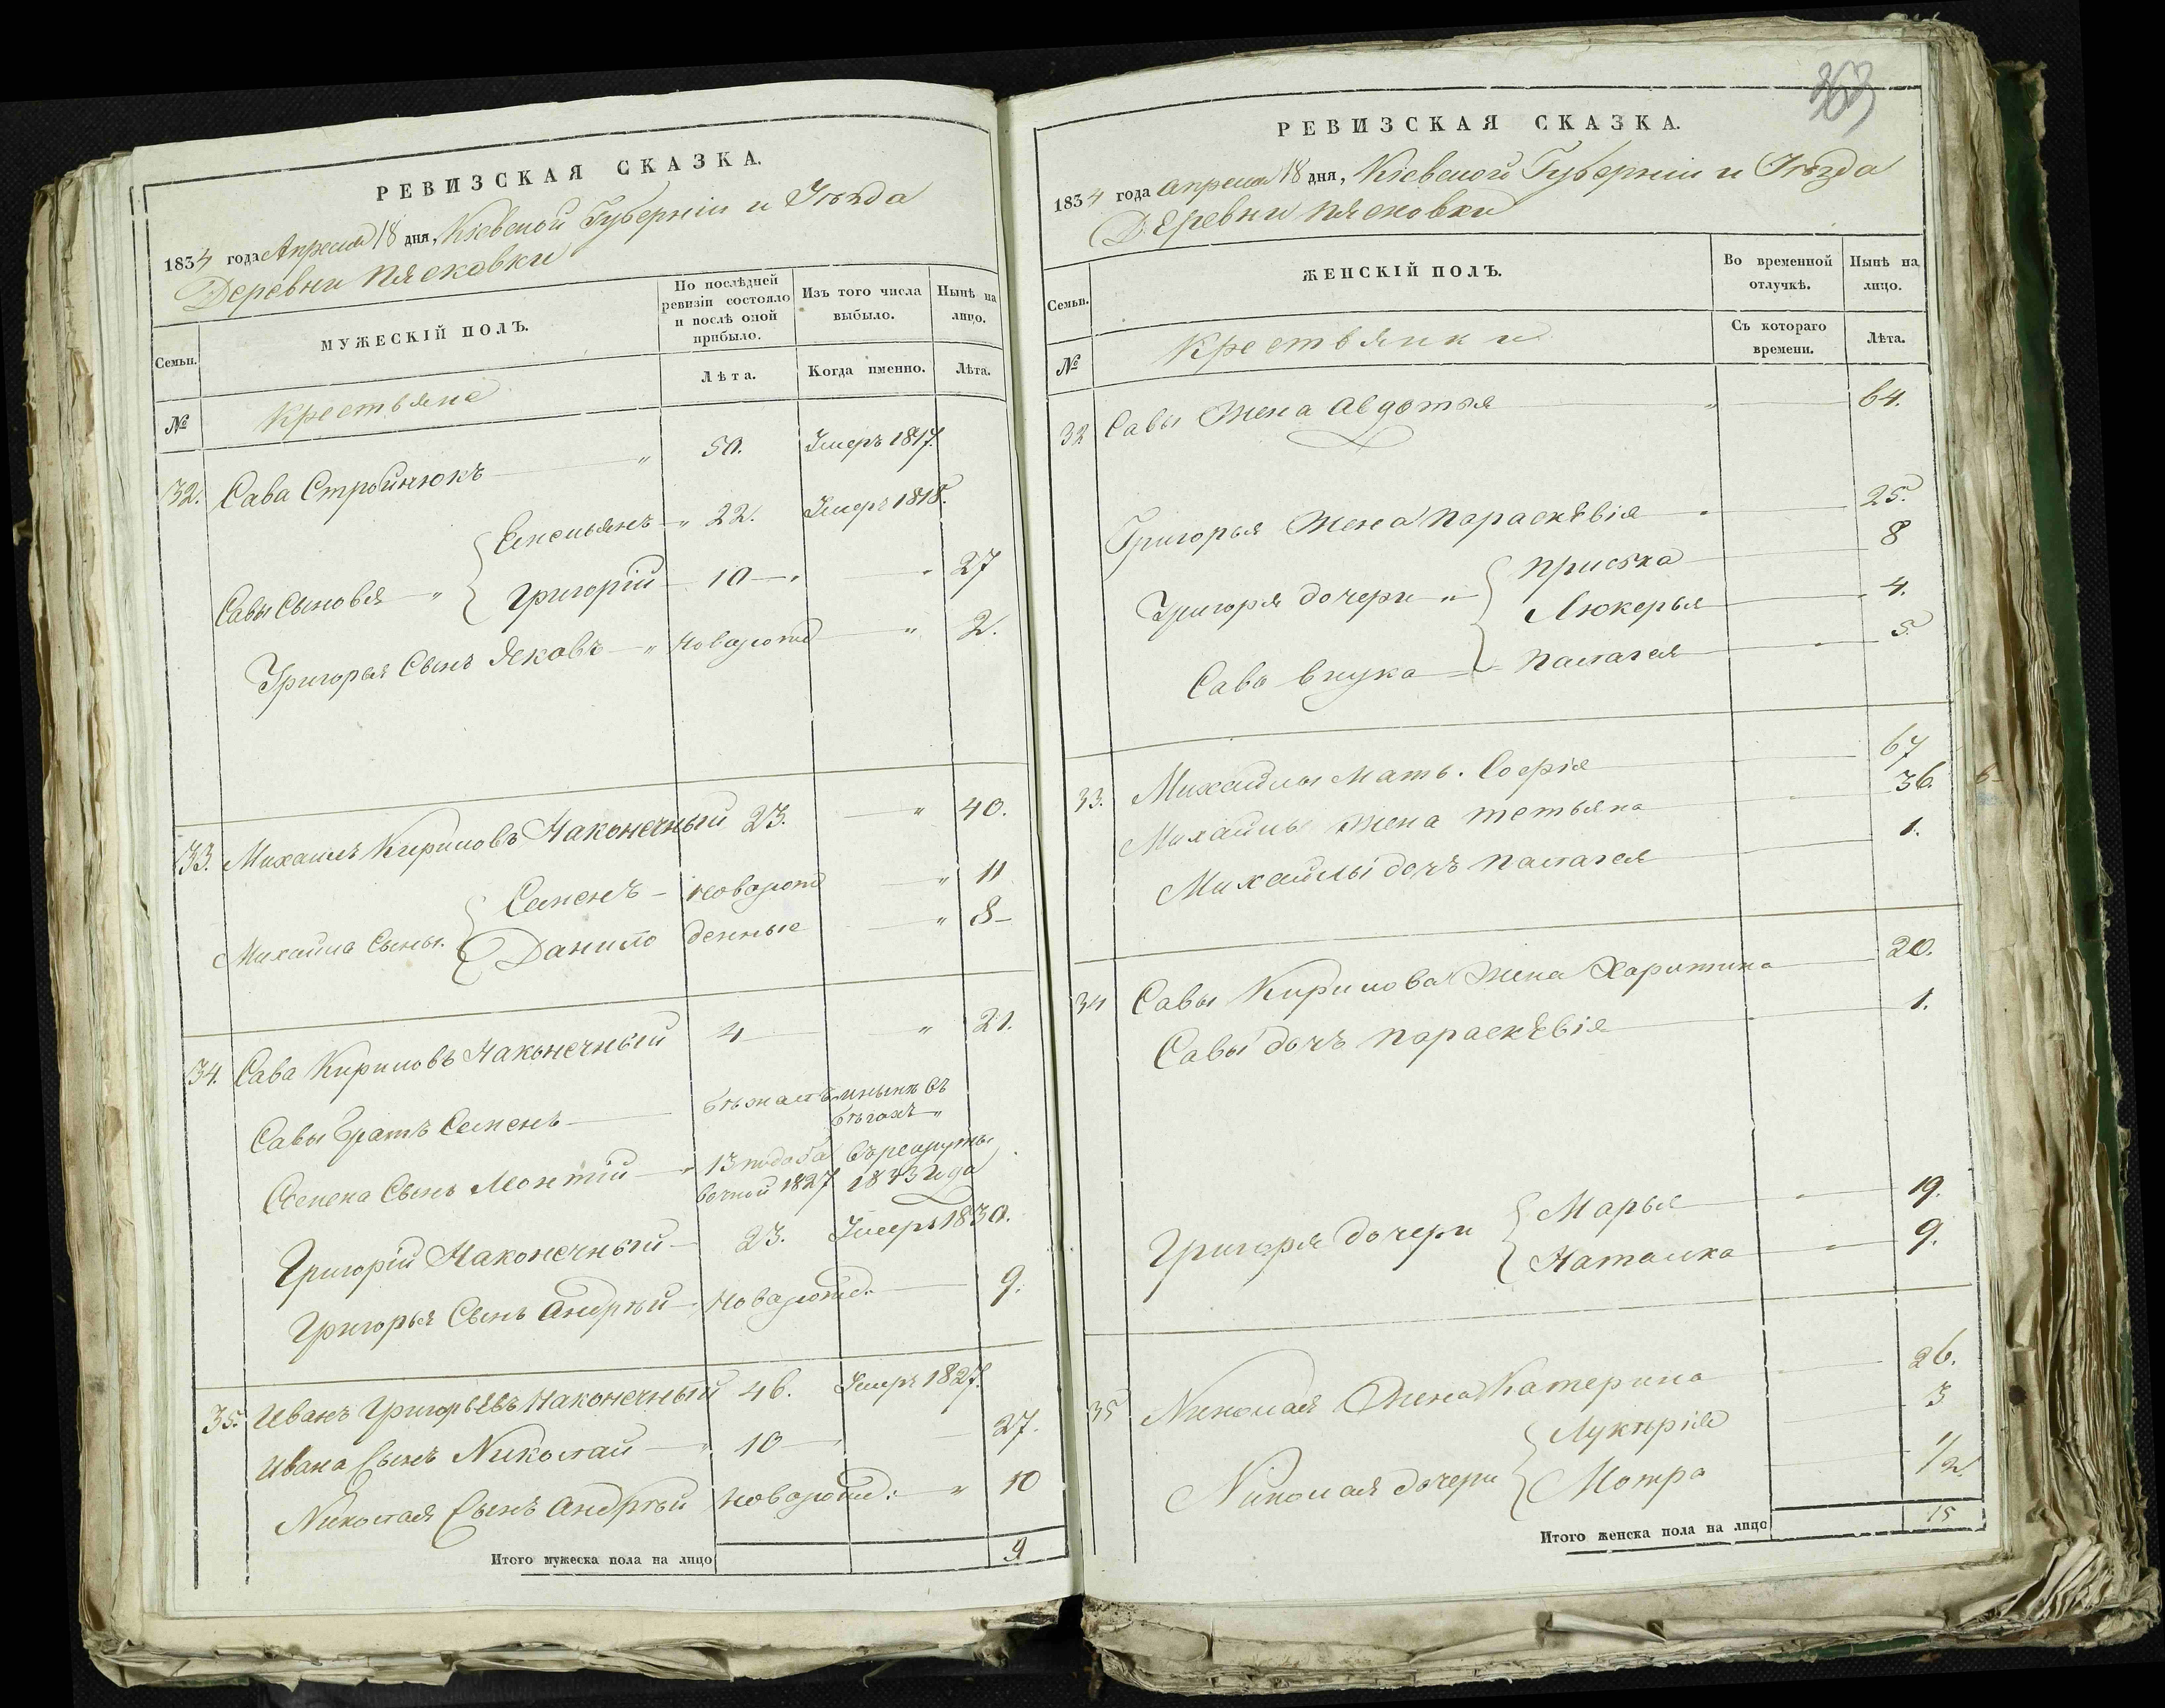 РЕВИЗСКАЯ СКАЗКА.
1834 года Апреля 18 дня, Кіевской Губерніи и Уѣзда
Деревни Пясковки
Семьи.
МУЖЕСКІЙ ПОЛЪ.
По послѣдней ревизіи состояло и послѣ оной прибыло.
Изъ того числа выбыло.
Нынѣ на лицо.
№
Крестьяне
Лѣта.
Когда именно.
Лѣта.
32. Сава Стройнюкъ " 50. Умеръ 1817.
Савы Сыновья " Емельянъ " 22. Умеръ 1818.
Григорій 10 " " 27
Григорья Сынъ Яковъ " Новарожд " 2.
33. Михаилъ Кириловъ Наконечный 23. " 40.
Михайла Сыны. Семенъ новарож " 11
Данило денные " 8
34. Сава Кириловъ Наконечный 4 " 21.
Савы Братъ Семенъ бѣжалъ и нынѣ въ бѣгахъ "
Семена Сынъ Леонтій " 13 подоба вочной 1827 въ рекруты 1833 Года
Григорій Наконечный 23. Умеръ 1830.
Григорья Сынъ Андрѣй Новарожд. 9.
35. Иванъ Григорьевъ Наконечный 46. Умеръ 1827.
Ивана Сынъ Николай " 10 " 27.
Николая Сынъ Андрѣй Новарожд: " 10
Итого мужеска пола на лицо 9
363
РЕВИЗСКАЯ СКАЗКА.
1834 года Апреля 18 дня, Кіевской Губерніи и Уѣзда
Деревни Пясковки
Семьи.
ЖЕНСКІЙ ПОЛЪ.
Во временной отлучкѣ.
Нынѣ на лицо.
№
Крестьянки
Съ котораго времени.
Лѣта.
32 Савы Жена Авдотья " 64.
Григорья Жена Параскѣвія 25.
Григорья дочери " Приська 8
Люкерья 4.
Сава внука Палагея 5.
33. Михайлы Мать. Софія 67
Михайлы Жена Тетьяна 36.
Михайлы дочь Палагея 1.
34 Савы Кирилова Жена Харитина 20.
Савы дочь Параскѣвія 1.
Григорья дочери Марья 19.
Наталка 9.
35 Николая Жена Катерина 26.
Николая дочери Лукѣрія 3
Мотра 1/2
Итого женска пола на лицо 15